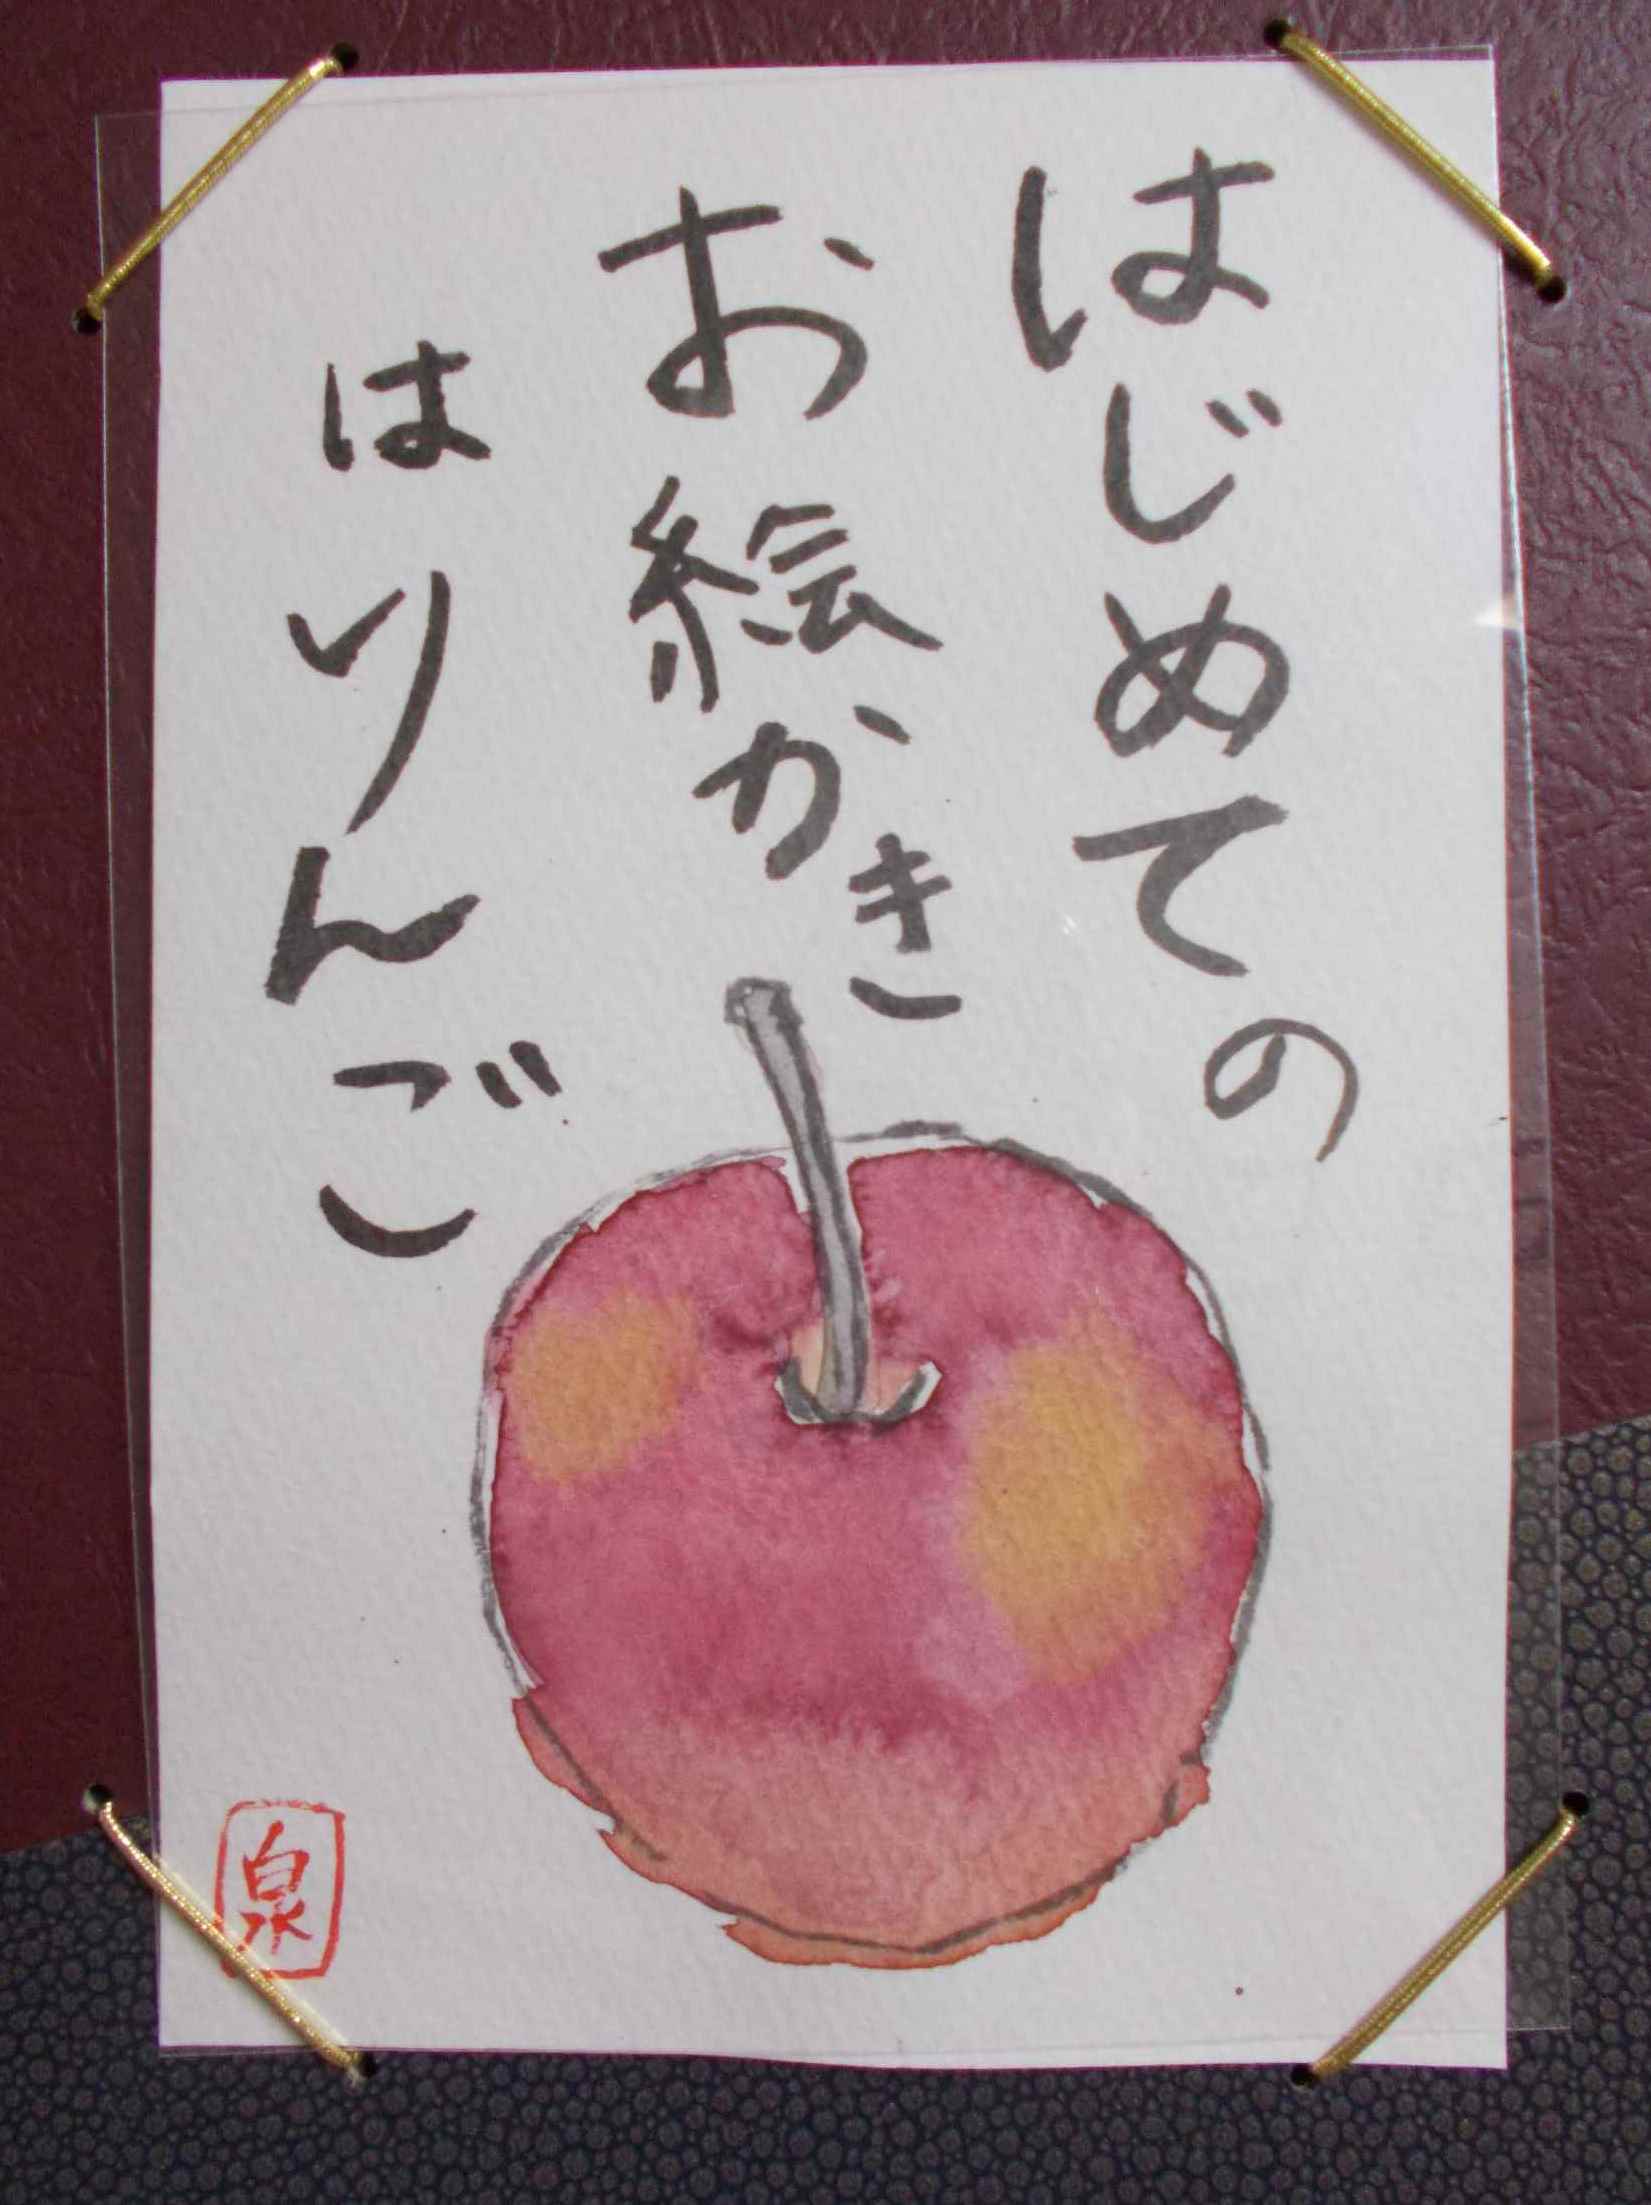 はじめての
お絵かき
はりんご
泉